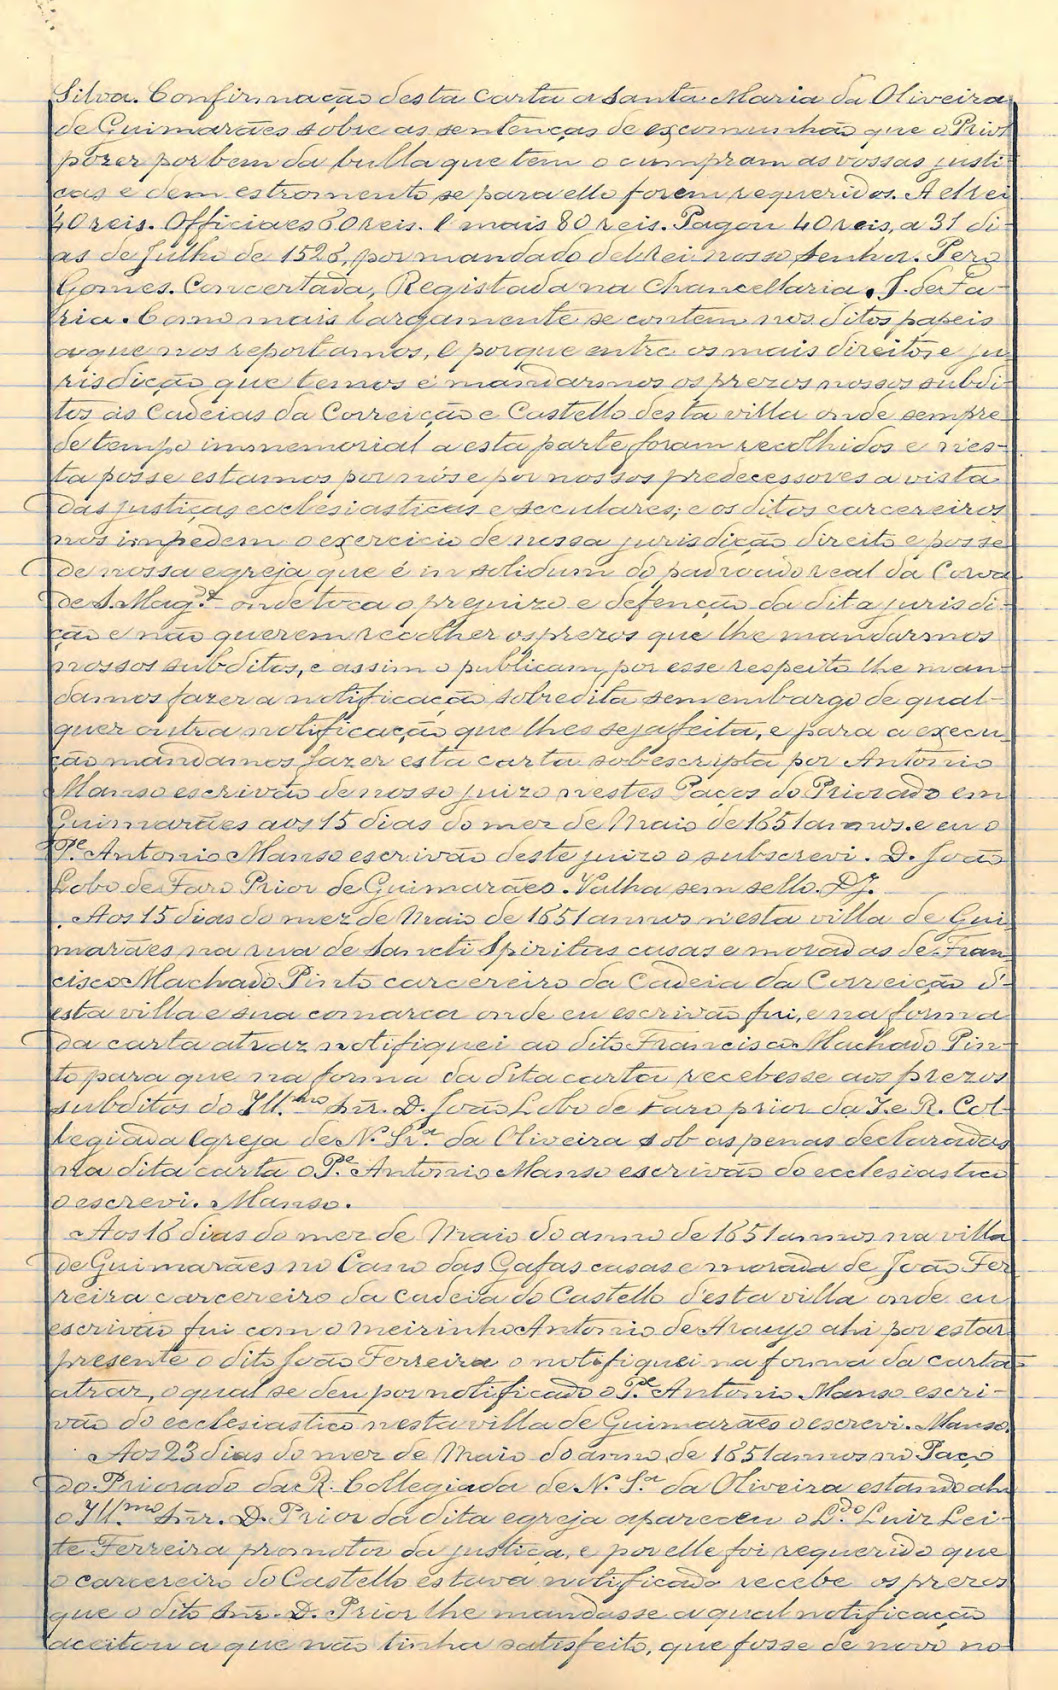 Silva. Confirmação desta carta a Santa Maria da Oliveira
de Guimarães sobre as sentenças de excomunhão que o Prior
pozer por bem da bulla que tem o cumpram as vossas justi-
ças e dem estromento, se para ello forem requeridos. A elrei
40 reis. Officiaes 60 reis. E mais 80 reis. Pagou 40 reis, a 31 di-
as de Julho de 1528, por mandado delrei nosso senhor. Pero
Gomes. Concertada, Registada na Chancellaria, J. de Fa-
ria. Como mais largamente se contem nos ditos papeis
a que nos reportamos, E porque entre os mais direitos e ju-
risdição que temos é mandarmos os prezos nossos subdi-
tos ás Cadeias da Correição e Castello desta villa onde sempre
de tempo immemorial a esta parte foram recolhidos e nes-
ta posse estamos por nós e por nossos predecessores a vista
das justiças ecclesiasticas e seculares; e os ditos carcereiros
nos impedem o exercicio de nossa jurisdição direito e posse
de nossa egreja que é in solidum do padroado real da Coroa
de S. Magde. onde toca o prejuizo e defenção da dita jurisdi-
ção e não querem recolher os prezos que lhe mandarmos
nossos subditos, e assim o publicam, por esse respeito lhe man-
damos fazer a notificação sobredita sem embargo de qual-
quer outra notificação que lhes seja feita, e para a execu-
ção mandamos fazer esta carta sobescripta por Antonio
Manso escrivão de nosso juizo nestes Paços do Priorado em
Guimarães aos 15 dias do mez de Maio de 1651 annos. e eu o
Pe. Antonio Manso escrivão deste juizo o subscrevi. D. João
Lobo de Faro Prior de Guimarães. Valha sem sello. DJ.
Aos 15 dias do mez de Maio de 1651 annos n'esta villa de Gui-
marães na rua de Sancti Spiritus casas e moradas de Fran-
cisco Machado Pinto carcereiro da Cadeia da Correição d'-
esta villa e sua comarca onde eu escrivão fui, e na forma
da carta atraz notifiquei ao dito Francisco Machado Pin-
to para que na forma da dita carta recebesse aos prezos
subditos do Ill.mo Snr. D. João Lobo de Faro prior da I. e R. Col-
legiada Egreja de N. Sra. da Oliveira sob as penas declaradas
na dita carta o Pe. Antonio Manso escrivão do ecclesiastico
o escrevi. Manso.
Aos 18 dias do mez de Maio do anno de 1651 annos na villa
de Guimarães no Cano das Gafas casas e morada de João Fer-
reira carcereiro da cadeia do Castello d'esta villa onde eu
escrivão fui com o meirinho Antonio de Araujo ahi por estar
presente o dito João Ferreira o notifiquei na forma da carta
atraz, o qual se deu por notificado o Pe. Antonio Manso escri-
vão do ecclesiastico nesta villa de Guimarães o escrevi. Manso.
Aos 23 dias do mez de Maio do anno de 1651 annos no Paço
do Priorado da R. Collegiada de N. Sra. da Oliveira estando ahi
o Ill.mo Snr. D. Prior da dita egreja apareceu o L.do Luiz Lei-
te Ferreira promotor da justiça, e por elle foi requerido que
o carcereiro do Castello estava notificado recebe os prezos
que o dito Snr. D. Prior lhe mandasse a qual notificação
aceitou a que não tinha satisfeito, que fosse de novo no-